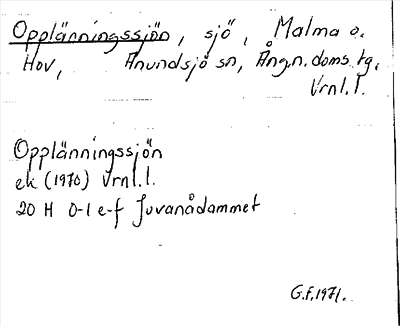 Opplänningssjön, sjö, Malma o.
Hov, Anundsjö sn, Ång.n.doms.tg.
Vrnl.l.
Opplänningssjön
ek (1970) Vrnl.l.
20 H 0-1 e-f Juvanådammet
G.F.1971.